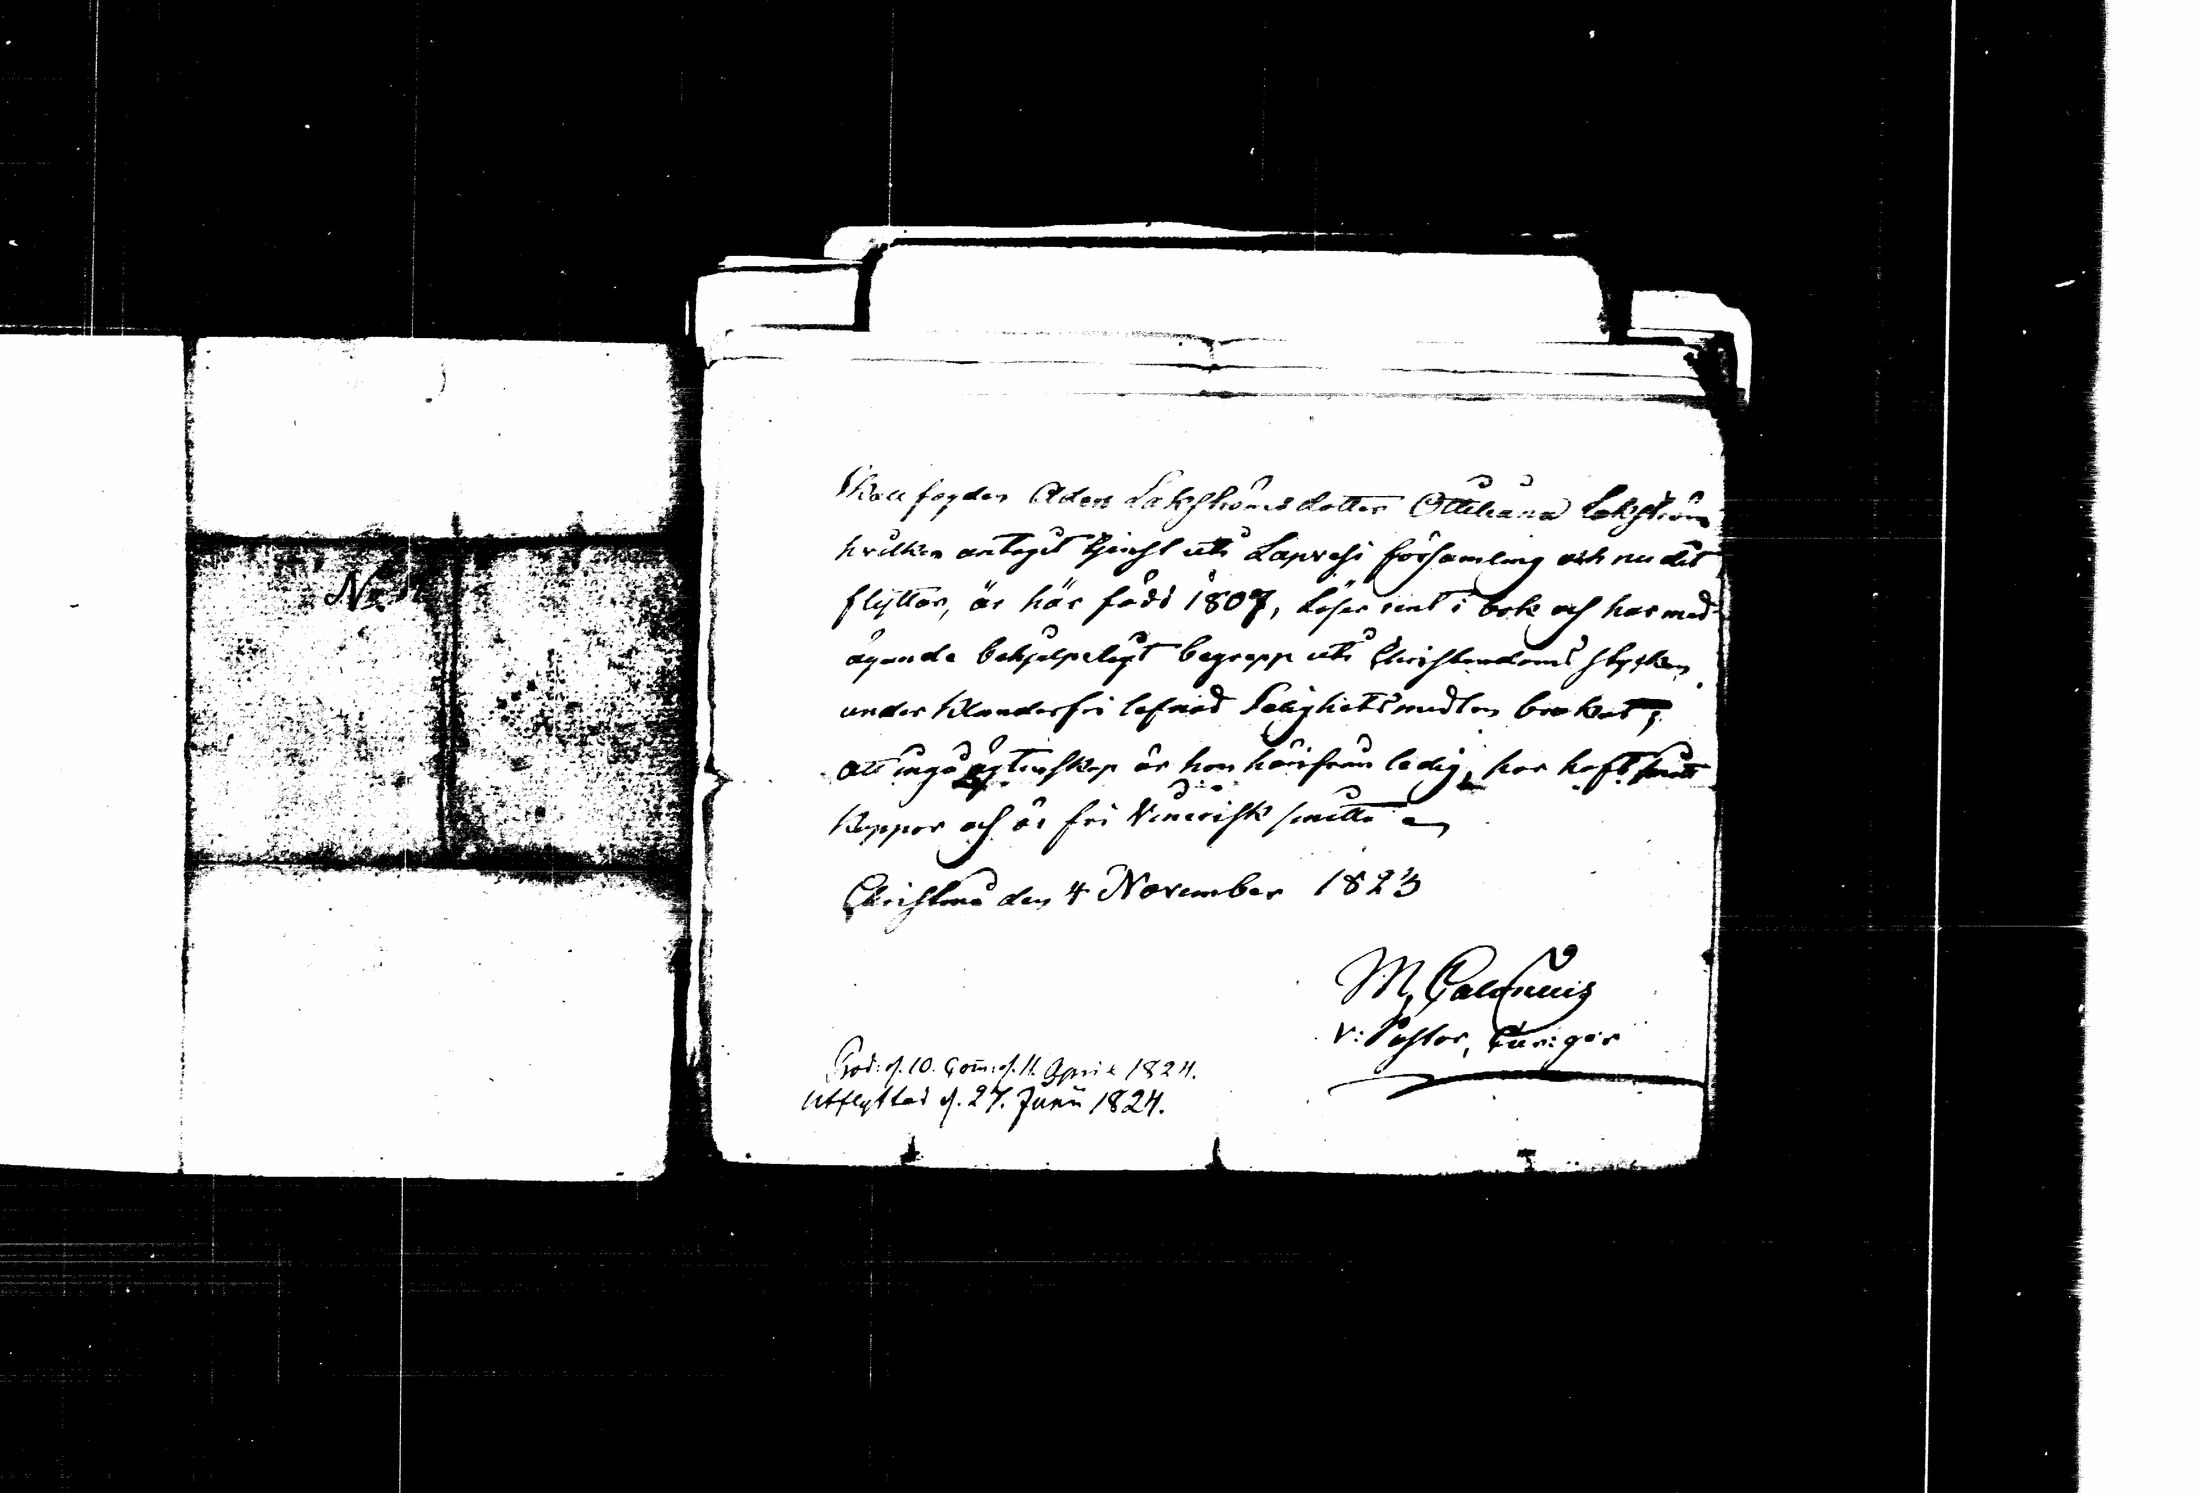 No
Skallfogden Adam Lakströms dotter Ottiliana Lakström
hvilken antagit tjenst uti Lapvesi församling och nu dit
flyttar, är här född 1807, Läser rent i bok och har med
ägande behjelpeligt begrepp uti Christendoms stycken
under klanderfri lefnad Salighetsmedlen brukat;
att ingå ägtenskap är hon härifrån ledig, har haft
koppor och är fri Venerisk smitta
Christina den 4 November 1823
M, Calonius
V: Pastor,
Prod: d. 10. Com: d. 11. April 1824.
Utflyttad d. 27. Junii 1824.